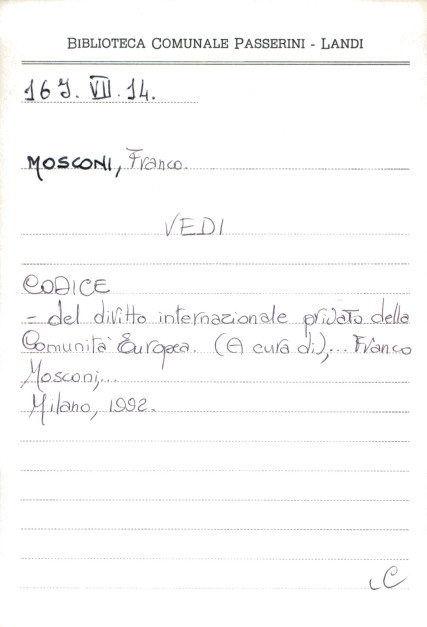 BIBLIOTECA COMUNALE PASSERINI - LANDI
16 J. VII. 14.
MOSCONI, Franco.
VEDI
CODICE
- del diritto internazionale privato della
Comunità Europea. (A cura di),... Franco
Mosconi,...
Milano, 1992.
C